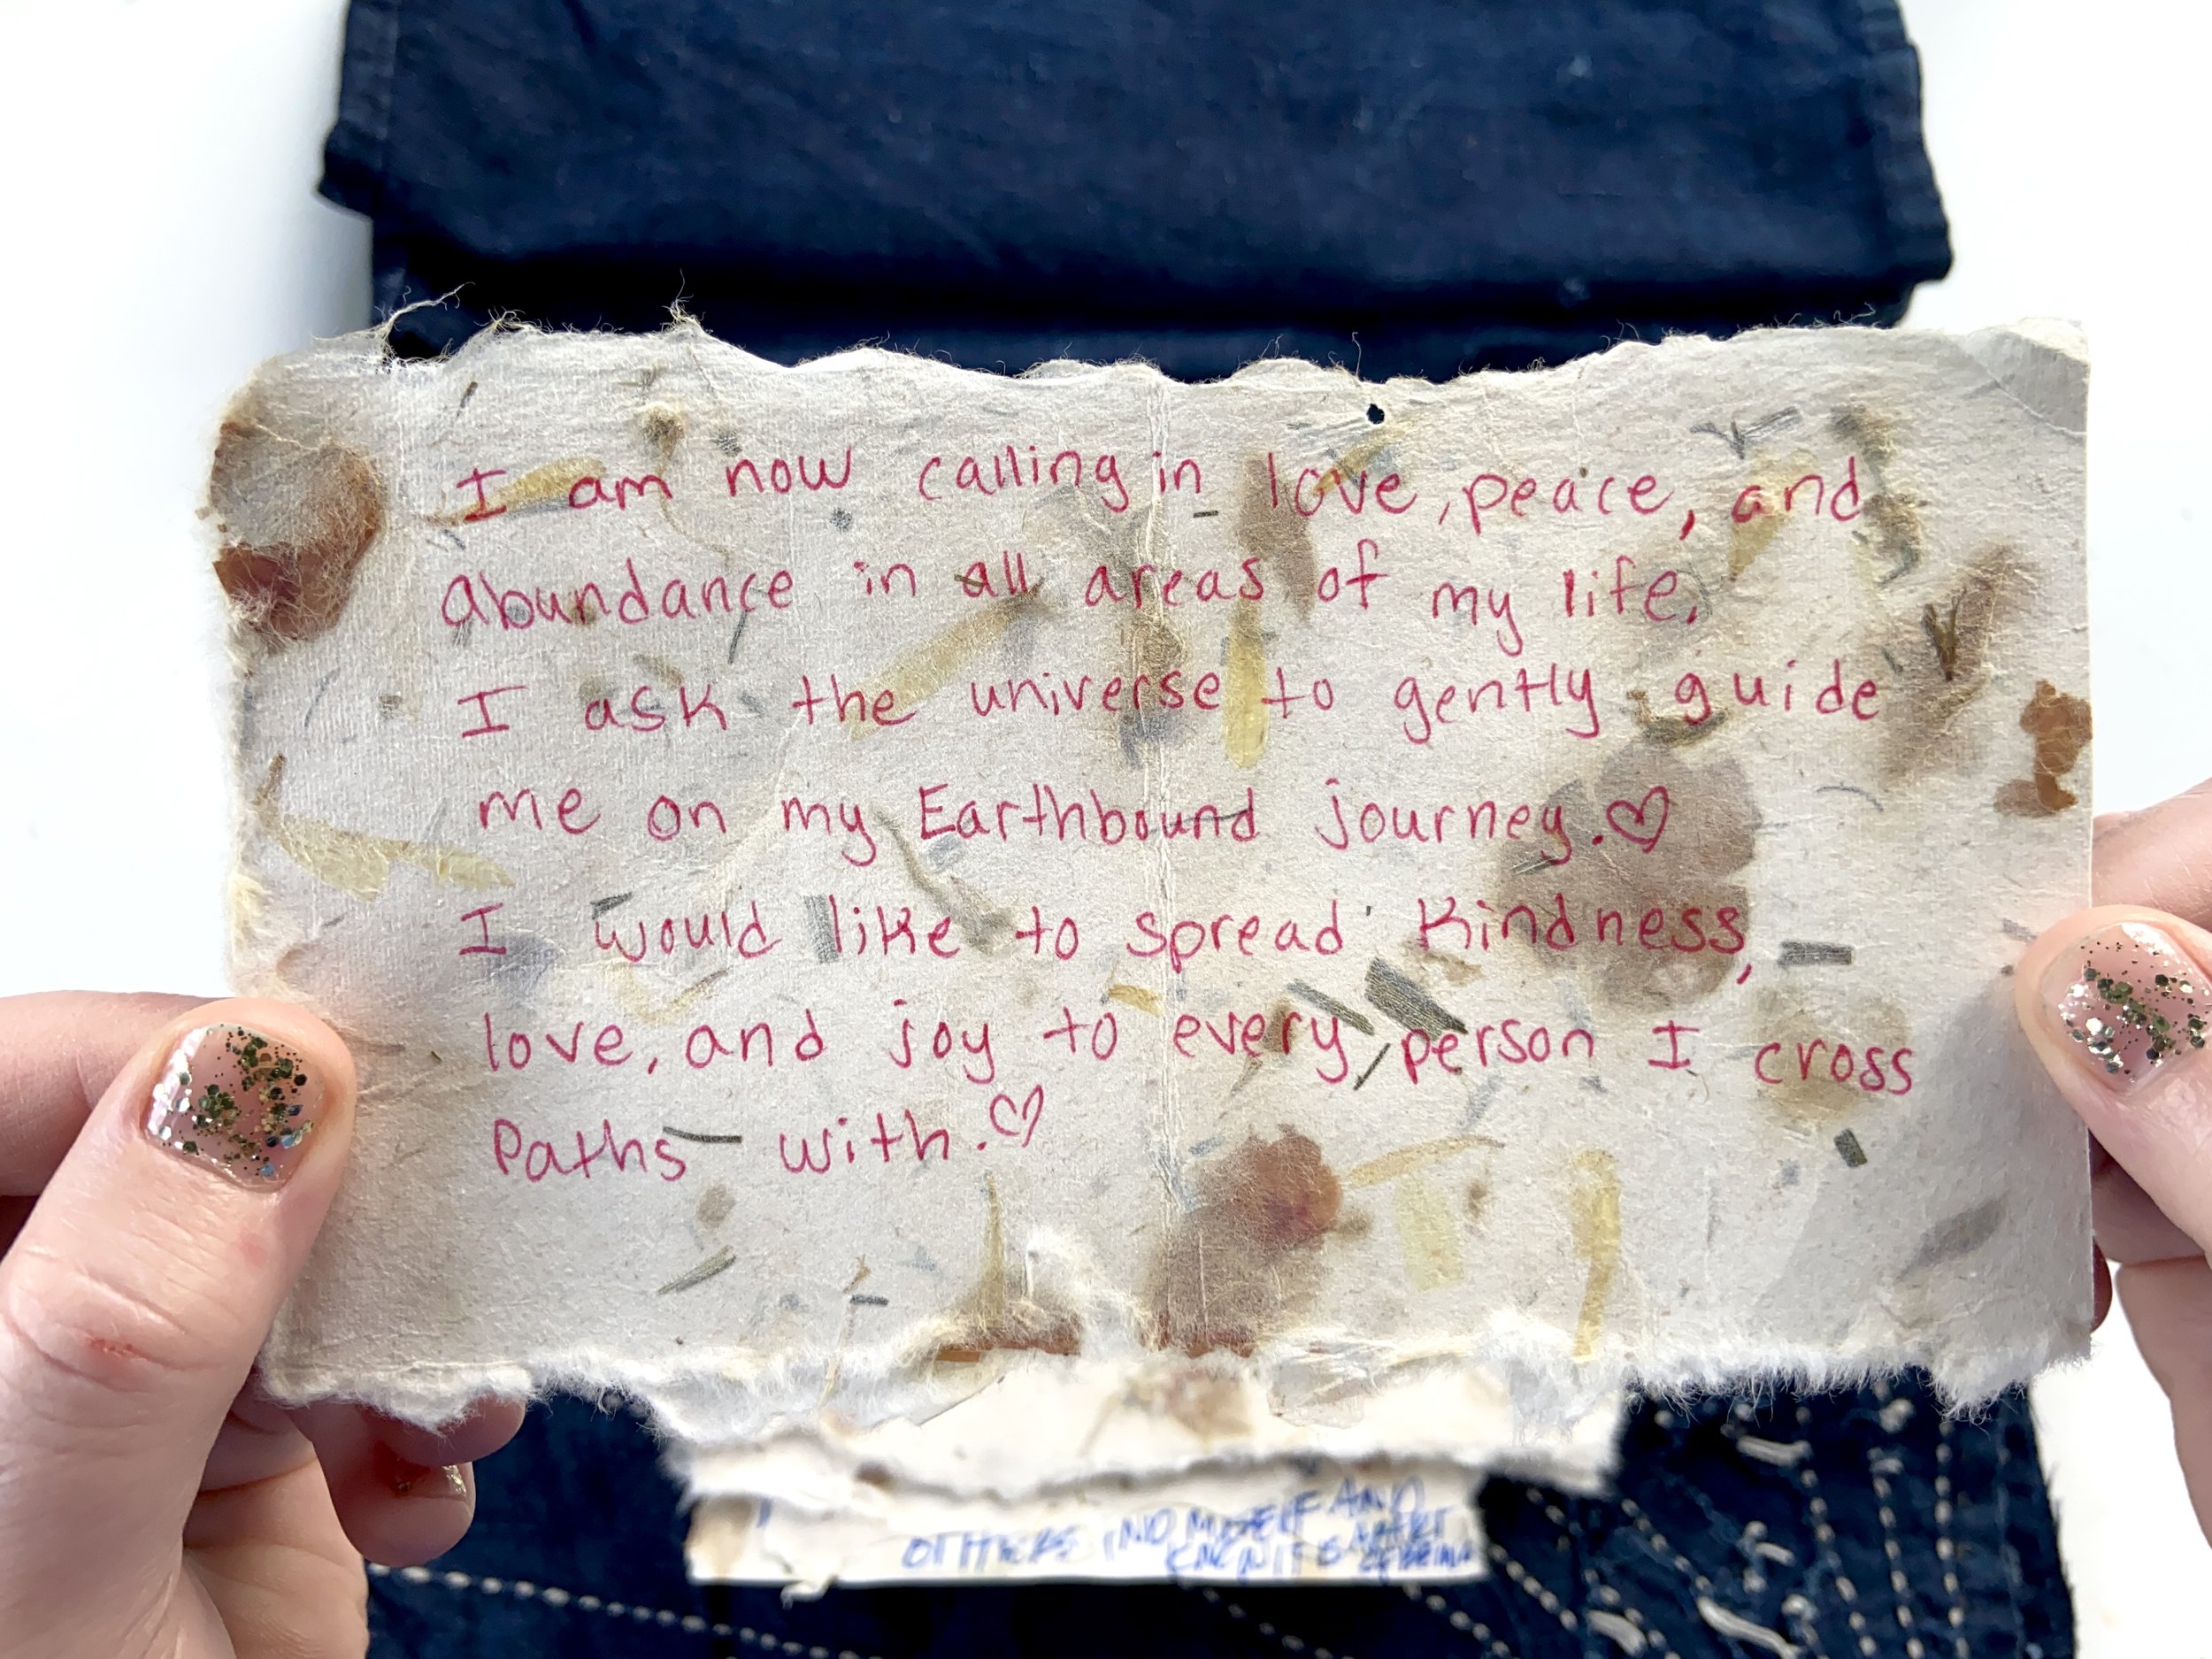 I am now calling in love, peace, and
abundance in all areas of my life.
I ask the universe to gently guide
me on my Earthbound journey. ♡
I would like to spread kindness,
love, and joy to every person I cross
Paths with. ♡
OTHERS MYSELF AND